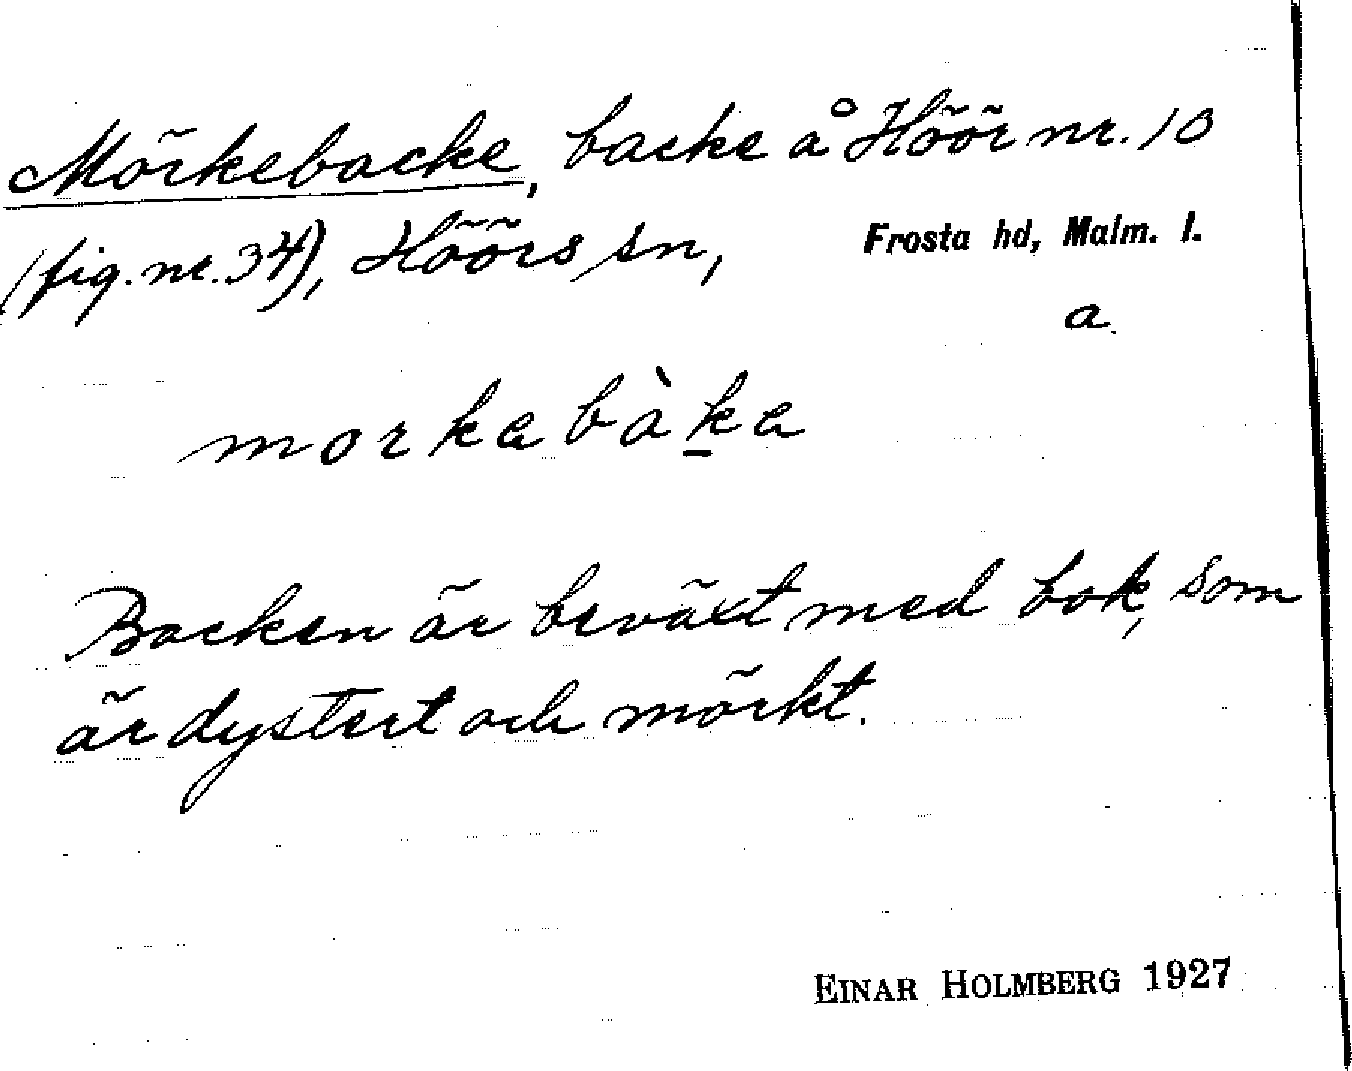 Mörkebacke, backe å Höör nr. 10
(fig. nr. 34), Höörs sn, Frosta hd, Malm. l.
a.
morkabàka
Backen är beväxt med bok, som
är dystert och mörkt.
EINAR HOLMBERG 1927